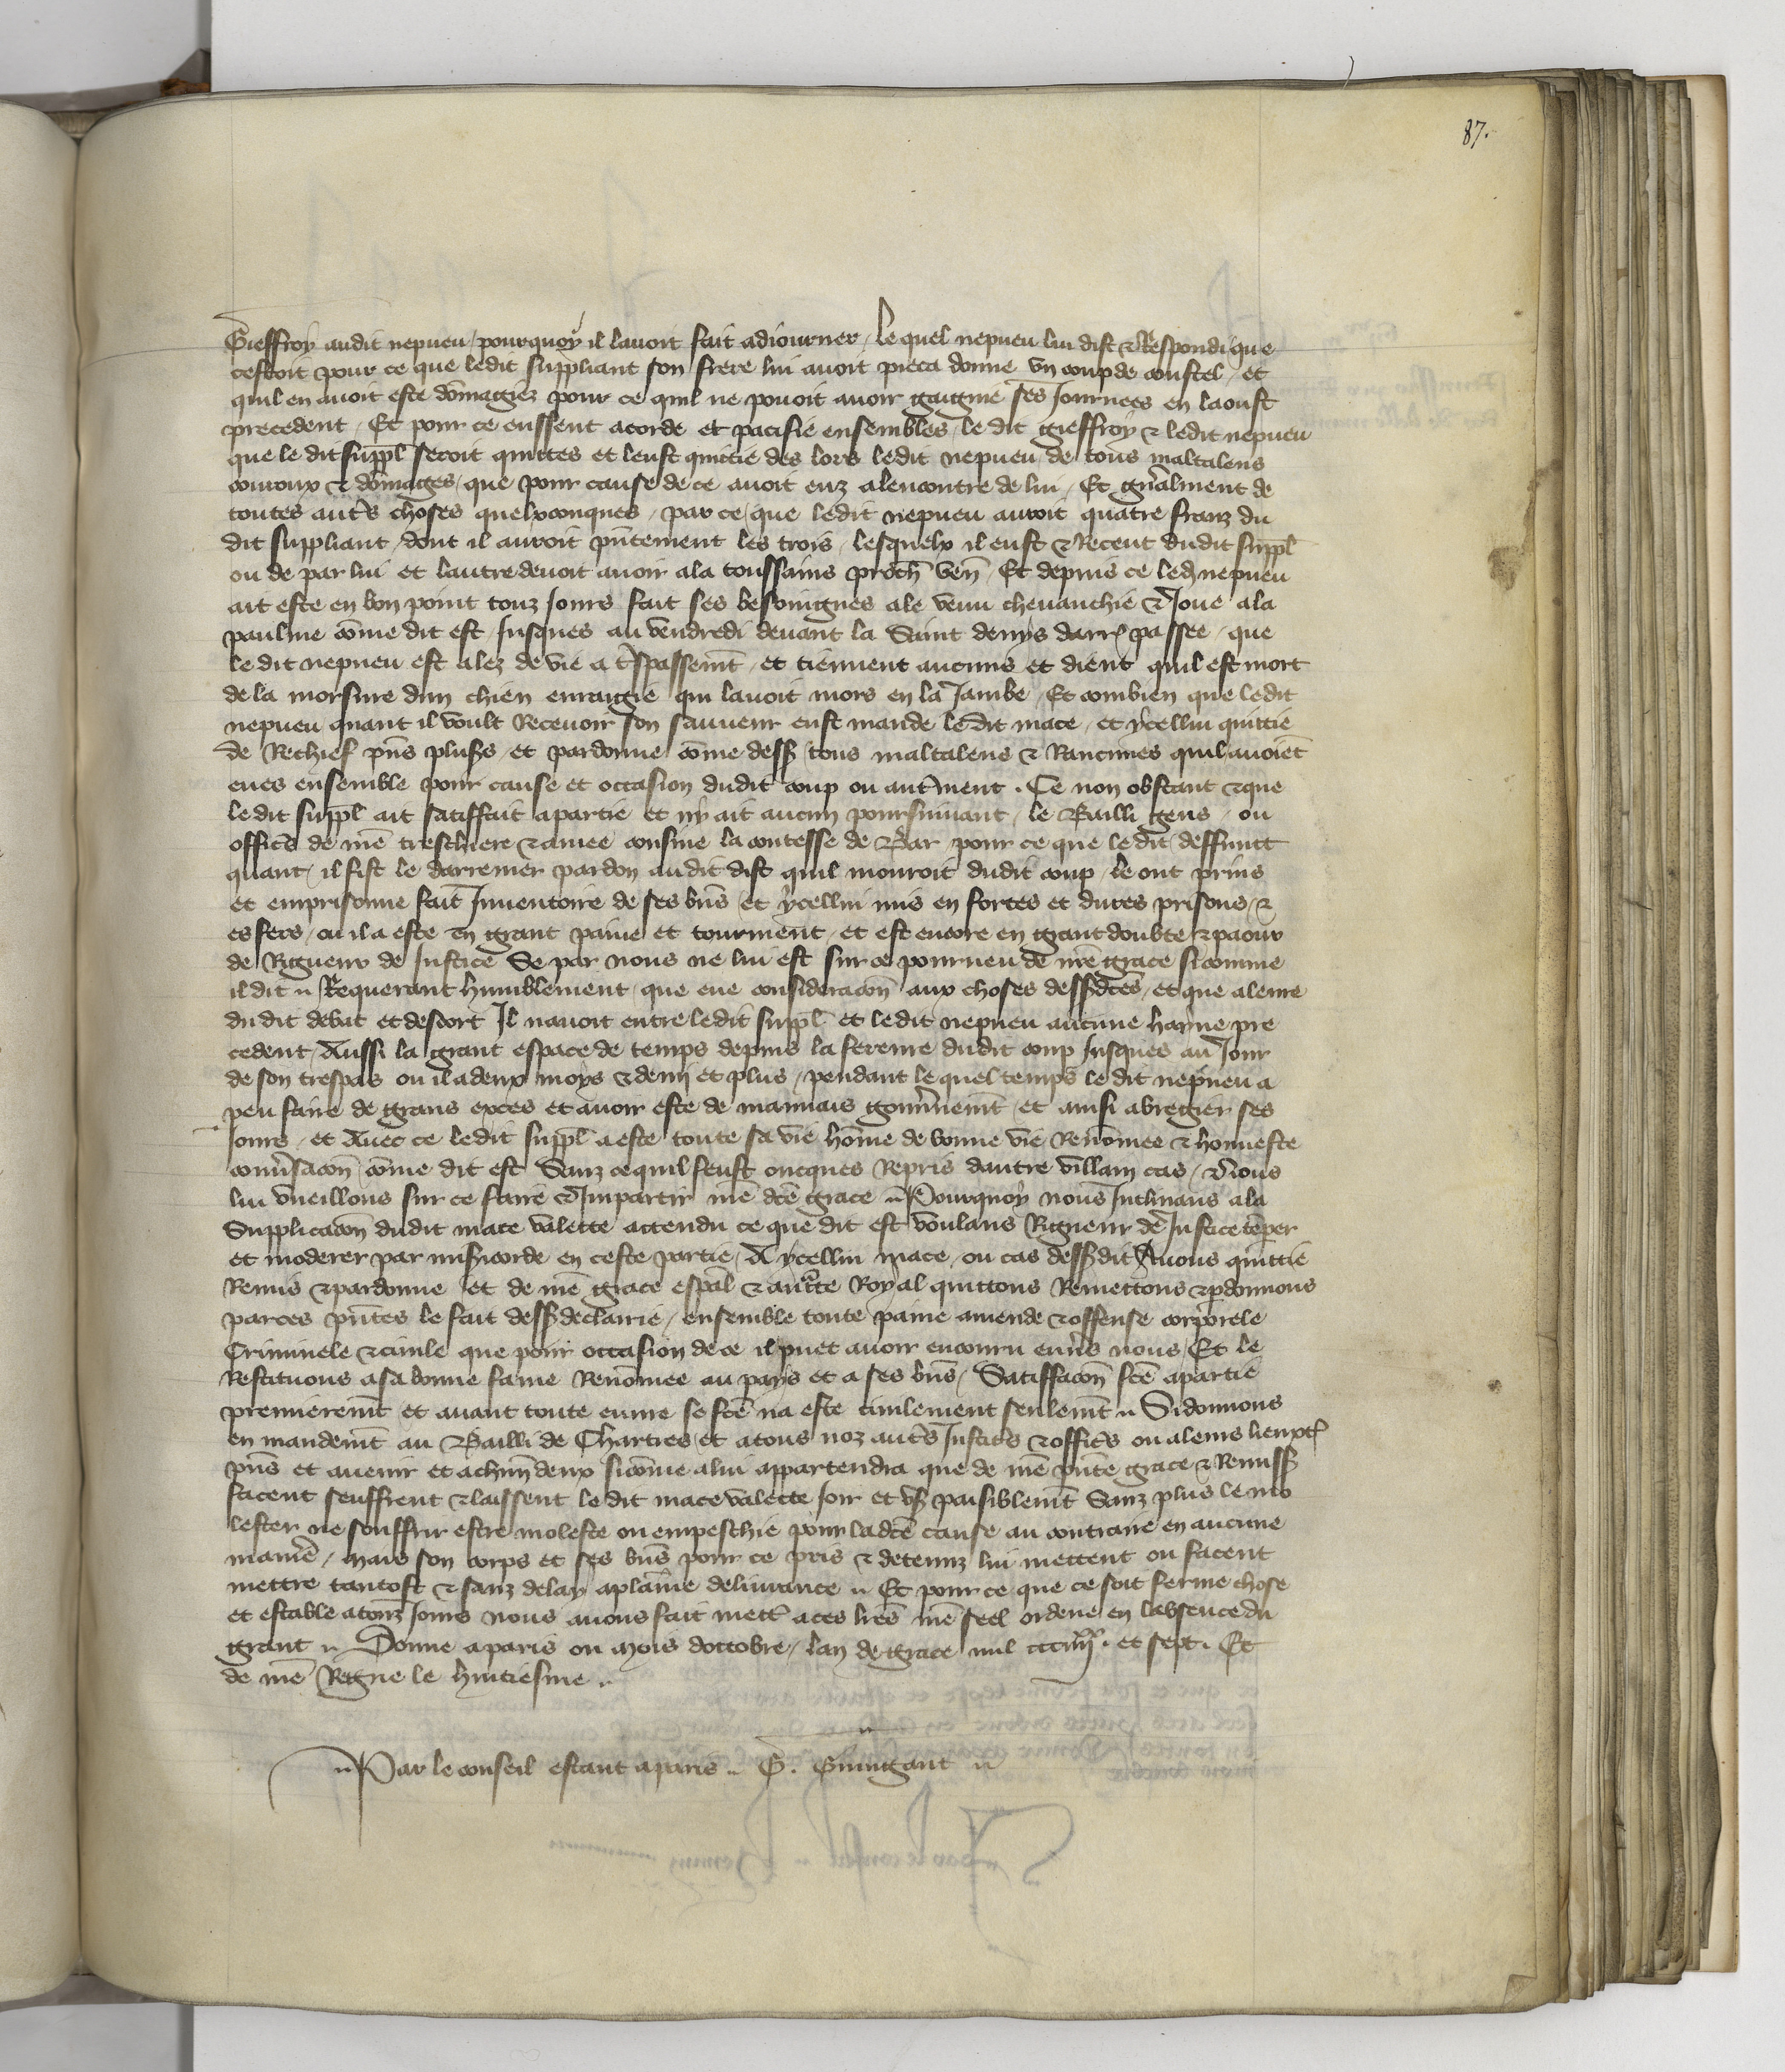 87.
Gieffroy audit nepueu / pourquoy il lauoit fait adiourner / le quel nepueu lui dist & Respondi que
cestoit pour ce que ledit suppliant son frere lui auoit pieca donne vn coup de coustel / et
quil en auoit este dōmagiez pour ce quil ne pouoit auoir gaigne ses Journees en laoust
precedent / Et pour ce eussent acorde et pacifie ensembles / le dit gieffroy & ledit nepueu
que le dit suppl̄ seroit quittes et leust quittie des lors ledit nepueu / de tous maltalens
couroux & dōmages / que pour cause de ce auoit euz alencontre de lui / Et gn̄alment de
toutes aut̄s choses quelxconques / par ce / que ledit nepueu auroit quatre franz du
dit suppliant / dont il auroit pn̄tement les trois / lesquelx il eust & Receut dudit suppl̄
ou de par lui et lautre deuoit auoir ala toussains proch̄ ven̄ / Et depuis ce led nepueu
ait este en bon point touz Jours fait ses besoingnes ale venu cheuauchie & Joue ala
paulme cōme dit est / Jusques au vendredi deuant la Saint denys darr̄ passee / que
le dit nepueu est alez de vie a t̄spassemt̄ / et tiennent aucuns et dient quil est mort
de la morsure dun chien enraigie qui lauoit mors en la Jambe / Et combien que ledit
nepueu quant il voult Receuoir son sauueur eust mande le dit mace / et ycellui quittie
de Rechief pn̄s plus̄s / et pardonne cōme dess̄ tous maltalens & Rancunes quil auoiēt
eues ensemble pour cause et occasion dudit coup ou aut̄ment . Ce non obstant & que
le dit suppl̄ ait satiffait apartie et ny ait aucun poursuiuant / le Bailli gens / ou
offic̄s de nr̄e treschiere & amee cousine la contesse de Bar / pour ce que le dit deffunct
quant / il fist le darrenier pardon audit dist quil mouroit dudit coup / le ont prins
et emprisonne fait Jnuentoire de ses bn̄s / et ycellui mis en fortes et dures prisons / &
es fers / ou il a este en grant paine et tourment / et est encore en grant doubte & paour
de Rigueur de Justice Se par nous ne lui est sur ce pourueu de nr̄e grace si comme
il dit " Requerant humblement / que eue consideracōn aux choses dess̄dc̄es / et que aleure
du dit debat et descort Jl nauoit entre ledit suppl̄ et ledit nepueu aucune hayne pre
cedent / Aussi la grant espace de temps depuis la fereure dudit coup Jusques au Jour
de son trespas ou il a deux moys & demi et plus / pendant le quel temps le dit nepueu a
peu faire de grans exces et auoir este de mauuais gouūnemt̄ / et ainsi abregier ses
Jours / et Auec ce ledit suppl̄ a este toute sa vie hōme de bonne vie Renōmee & honneste
conūsacōn / cōme dit est Sanz ce quil feust oncques Repris dautre villain cas / & Nous
lui vueillons sur ce faire & Jmpartir nr̄e dc̄e grace " Pourquoy nous Jnclinans ala
Supplicacōn dudit mace valette attendu ce que dit est voulans Rigueur de Justice tēper
et moderer par mis̄icorde en ceste partie / A ycellui mace / ou cas dess̄dit Auons quittie
Remis & pardonne et de nr̄e grace esp̄al & auct̄te Royal quittons Remettons & p̄donnons
par ces pn̄tes le fait dess̄ declairie / ensemble toute paine amende & offense corporele
Criminele & ciuile que pour occasion de ce il puet auoir encouru enūs nous / Et le
Restituons a sa bonne fame Renōmee au pays et a ses bn̄s / Satiffacōn fc̄e apartie
premieremt̄ et auant toute euure se fc̄e na este ciuilement seulemt̄ " Si donnons
en mandemt̄ au Bailli de Chartres / et atous noz aut̄s Justic̄s & offic̄s ou aleurs lieuxt̄
pn̄s et auenir et achūn deulx sicōme alui appartendra que de nr̄e pn̄te grace & Remiss̄
facent seuffrent & laissent le dit mace valette Joir et vs̄ paisiblemt̄ Sanz plus le mo
lester ne souffrir estre moleste ou empeschie pour ladc̄e cause au contraire en aucune
manie͂ / mais son corps et ses bn̄s pour ce pris & detenuz lui mettent ou facent
mettre tantost & sanz delay aplaine deliurance " Et pour ce que ce soit ferme chose
et estable atouz Jours nous auons fait mett̄ a ces lr̄es nr̄e seel ordene en labsence du
grant " Donne a paris ou mois doctobre / lan de grace mil ccciiijxx. et sept. Et
de nr̄e Regne le huitiesme "
" Par le conseil estant a paris " G. Guingant "